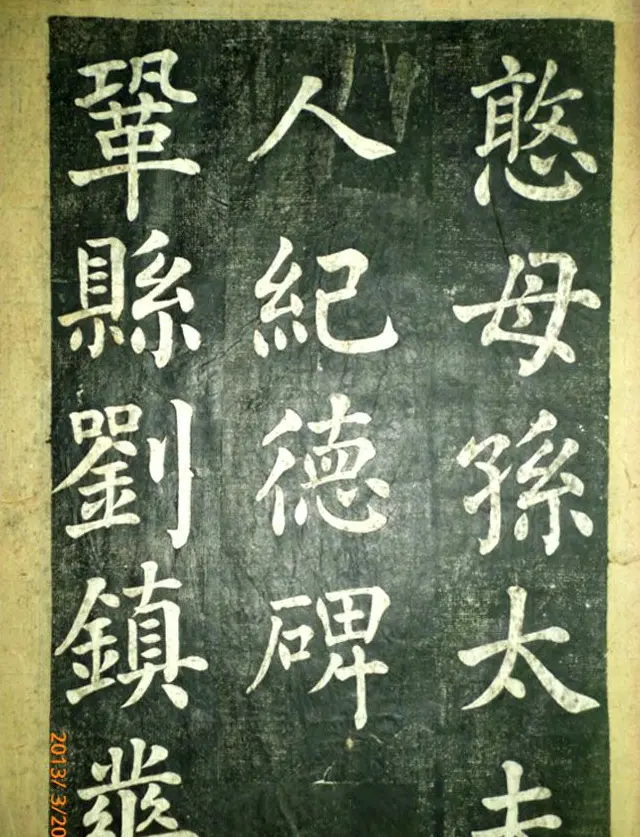 憨母孫太夫
人紀德碑
鞏縣劉鎮華
2013/ 3/20